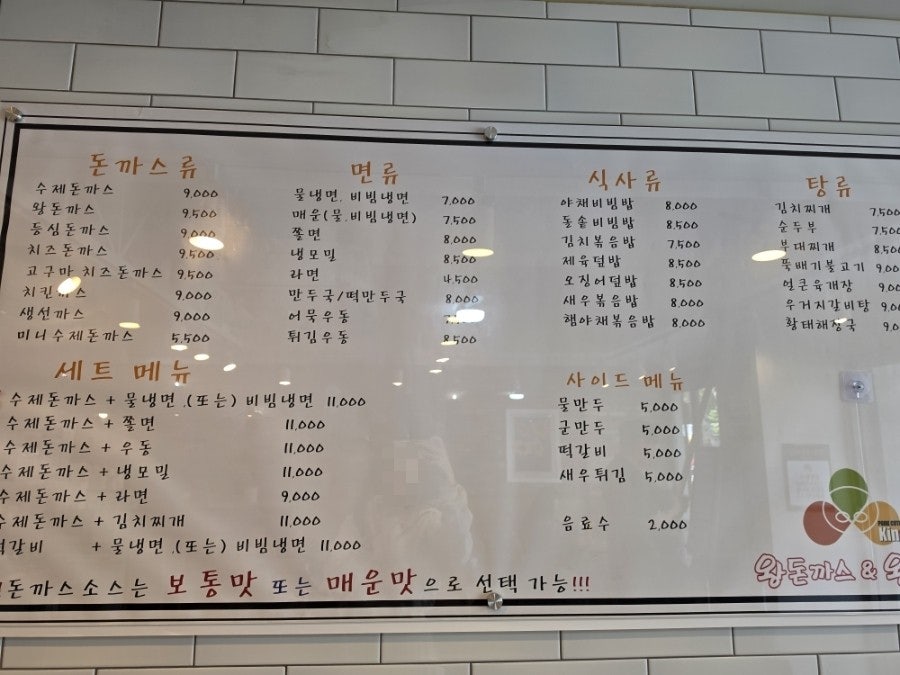 돈까스류
수제돈까스 9,000
왕돈까스 9,500
등심돈까스 9,000
치즈돈까스 9,500
고구마 치즈돈까스 9,500
치킨까스 9,000
생선까스 9,000
미니수제돈까스 5,500
면류
물냉면, 비빔냉면 7,000
매운(물,비빔냉면) 7,500
쫄면 8,000
냉모밀 8,500
라면 4,500
만두국/떡만두국 8,000
어묵우동
튀김우동 8,500
식사류
야채비빔밥 8,000
돌솥비빔밥 8,500
김치볶음밥 7,500
제육덮밥 8,500
오징어덮밥 8,500
새우볶음밥 8,000
햄야채볶음밥 8,000
탕류
김치찌개 7,500
순두부 7,500
부대찌개 8,500
뚝배기불고기 9,00
얼큰육개장 9,00
우거지갈비탕 9,00
황태해장국 9,0
세트 메뉴
수제돈까스 + 물냉면 .(또는) 비빔냉면 11,000
수제돈까스 + 쫄면 11,000
수제돈까스 + 우동 11,000
수제돈까스 + 냉모밀 11,000
수제돈까스 + 라면 9,000
수제돈까스 + 김치찌개 11,000
떡갈비 + 물냉면 .(또는) 비빔냉면 11,000
사이드 메뉴
물만두 5,000
군만두 5,000
떡갈비 5,000
새우튀김 5,000
음료수 2,000
돈까스소스는 보통맛 또는 매운맛으로 선택 가능!!!
PORK CUT
Kin
왕돈까스 & 왕